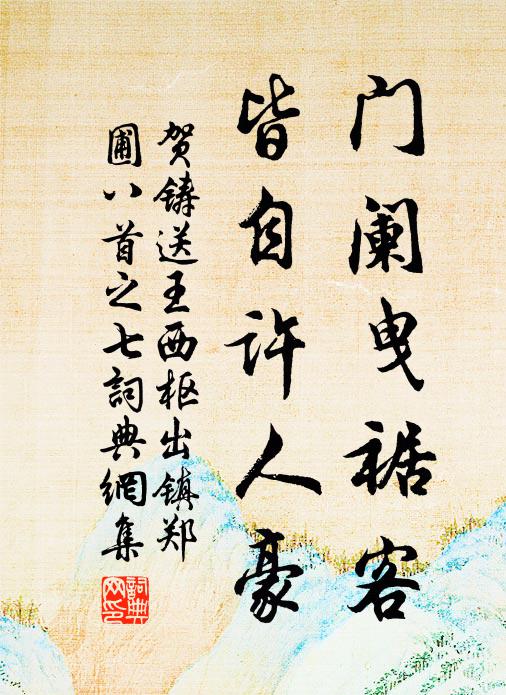 门阑曳裾客
皆自许人豪
贺铸送王西枢出镇郑
圃八首之七詞典網集
詞典网印